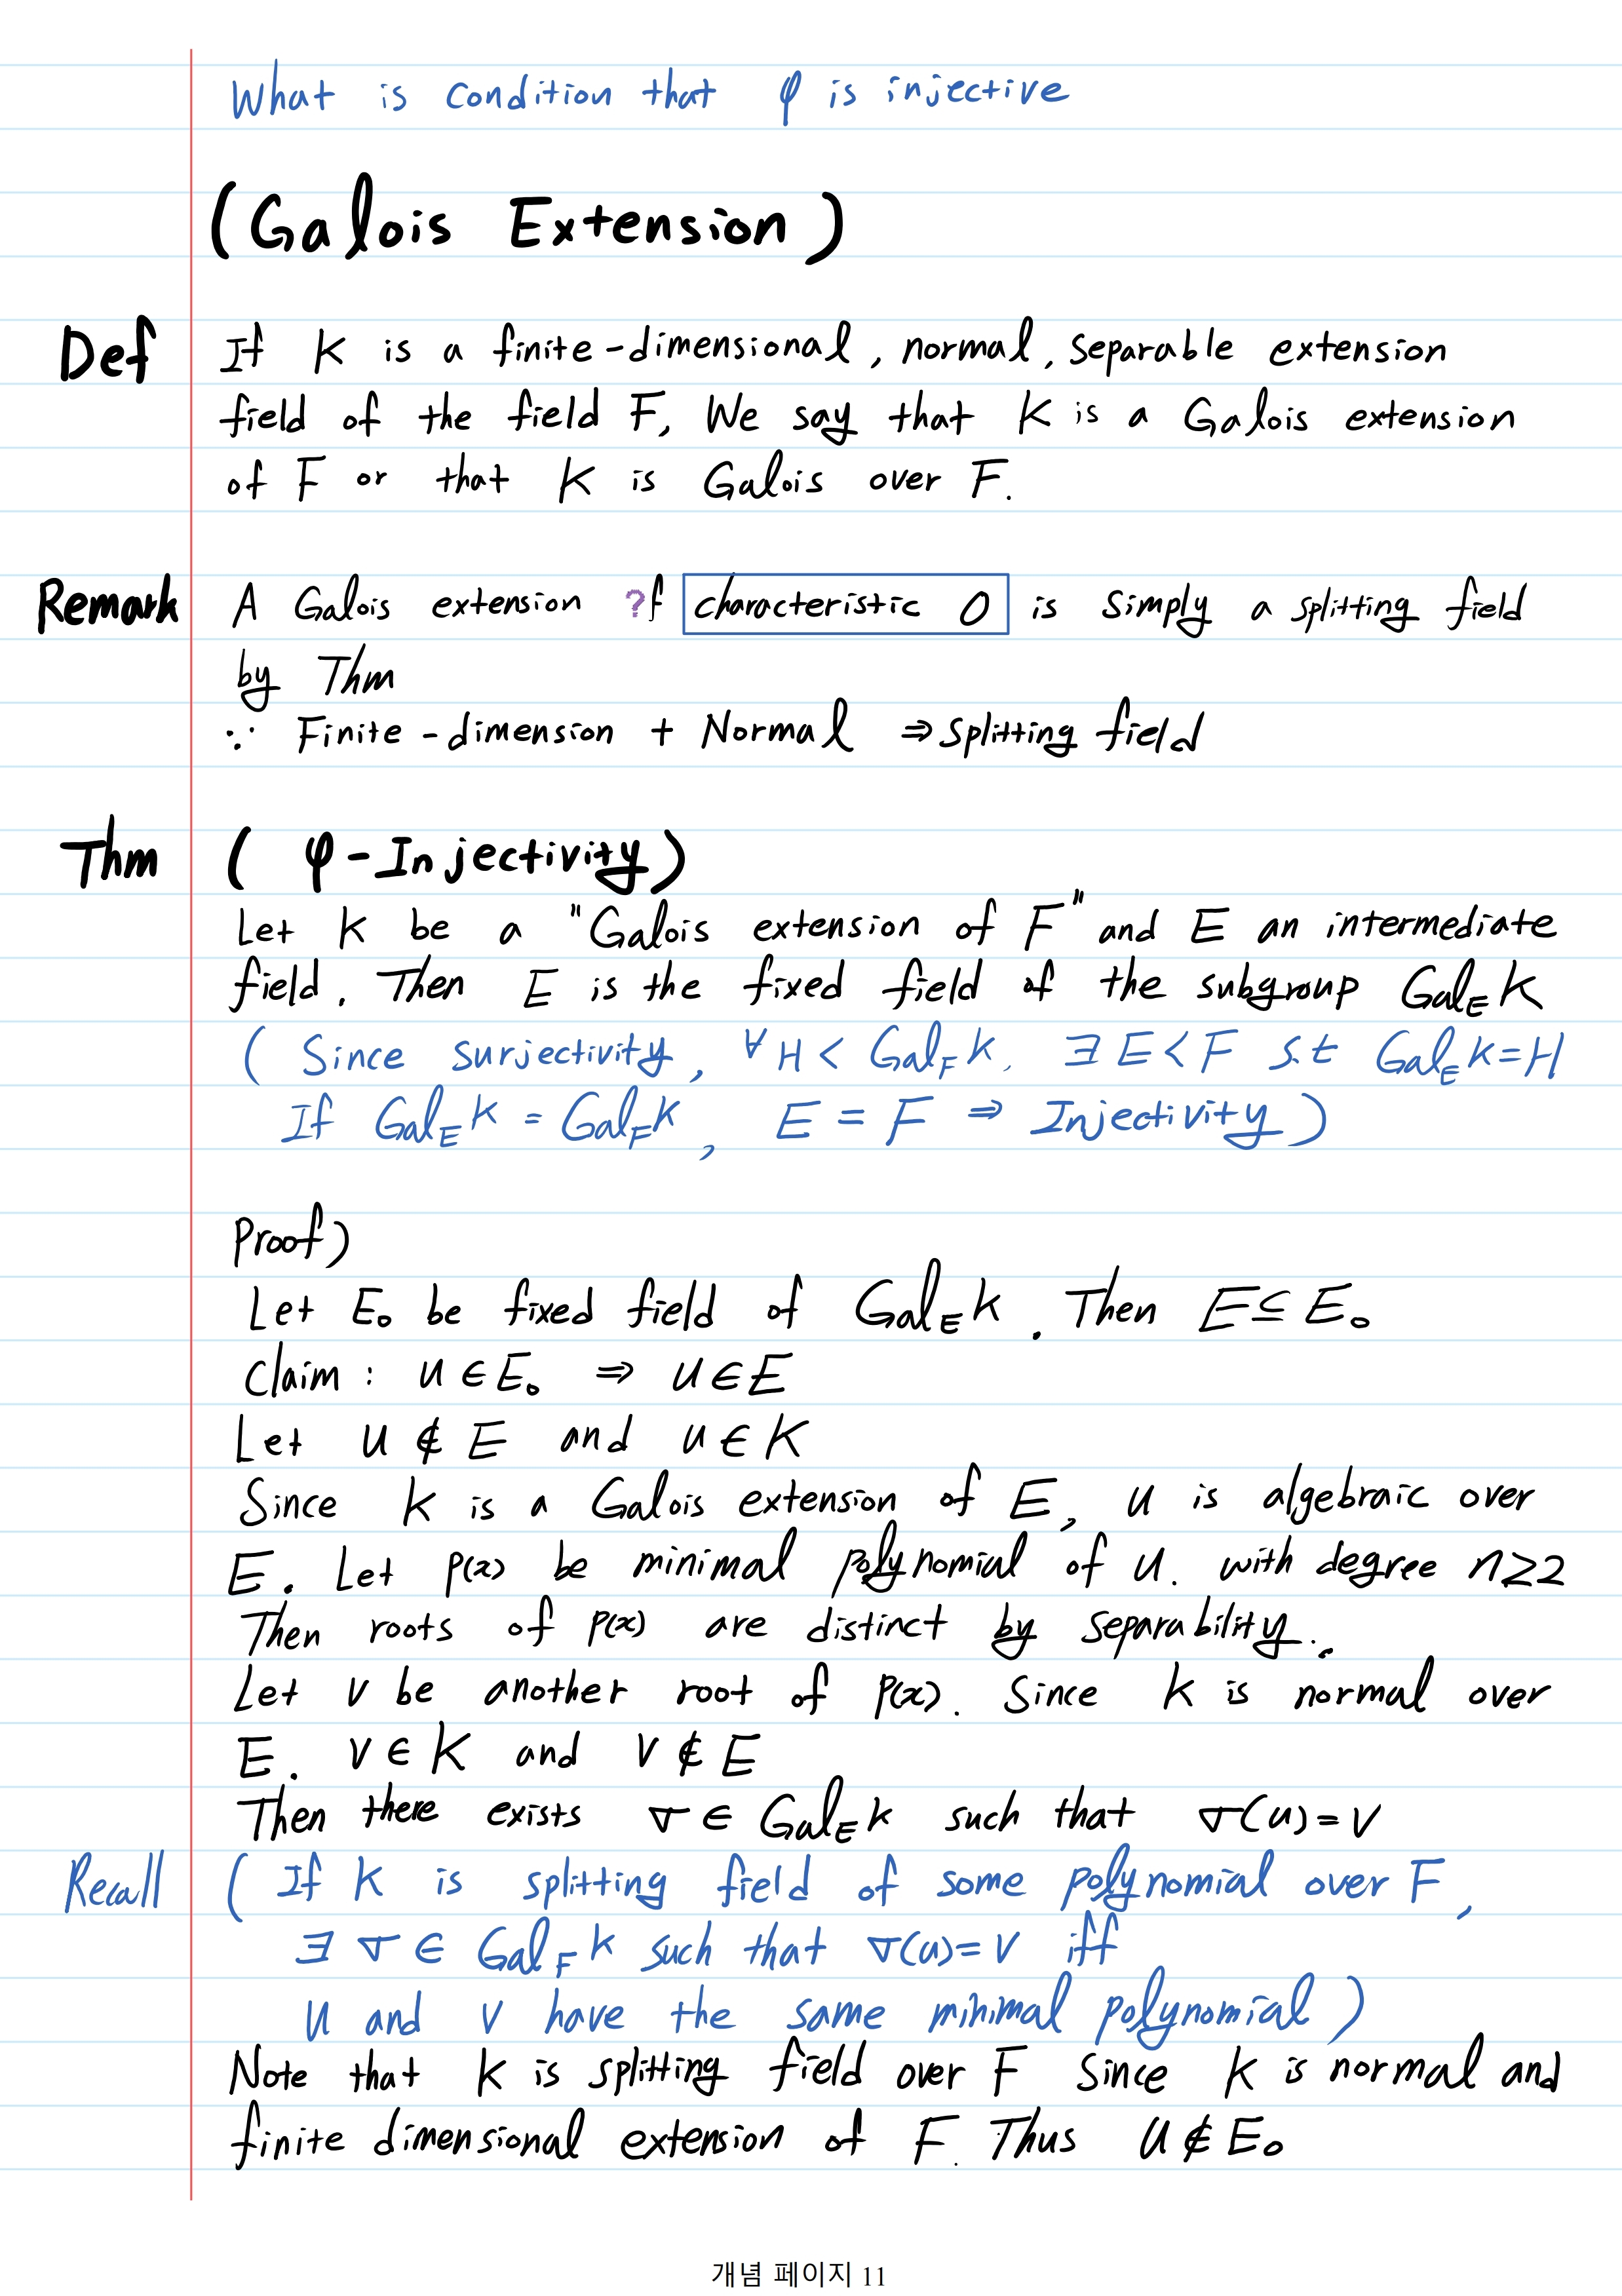 What is condition that φ is injective
(Galois Extension)
Def If K is a finite-dimensional, normal, separable extension
field of the field F, We say that K is a Galois extension
of F or that K is Galois over F.
Remark A Galois extension ?f characteristic 0 is simply a splitting field
by Thm
∵ Finite-dimension + Normal ⇒ splitting field
Thm ( φ-Injectivity)
Let K be a "Galois extension of F" and E an intermediate
field. Then E is the fixed field of the subgroup Gal_E K
( Since surjectivity, ∀H < Gal_F K, ∃ E < F s.t Gal_E K = H
If Gal_E K = Gal_F K, E = F ⇒ Injectivity )
Proof)
Let E₀ be fixed field of Gal_E K. Then E ⊆ E₀
Claim : u ∈ E₀ ⇒ u ∈ E
Let u ∉ E and u ∈ K
Since K is a Galois extension of E, u is algebraic over
E. Let p(x) be minimal polynomial of u. with degree n ≥ 2
Then roots of p(x) are distinct by separability..
Let v be another root of p(x). Since K is normal over
E. v ∈ K and v ∉ E
Then there exists σ ∈ Gal_E K such that σ(u) = v
Recall ( If K is splitting field of some polynomial over F,
∃ σ ∈ Gal_F K such that σ(u) = v iff
u and v have the same minimal polynomial )
Note that K is splitting field over F since K is normal and
finite dimensional extension of F. Thus u ∉ E₀
개념 페이지 11